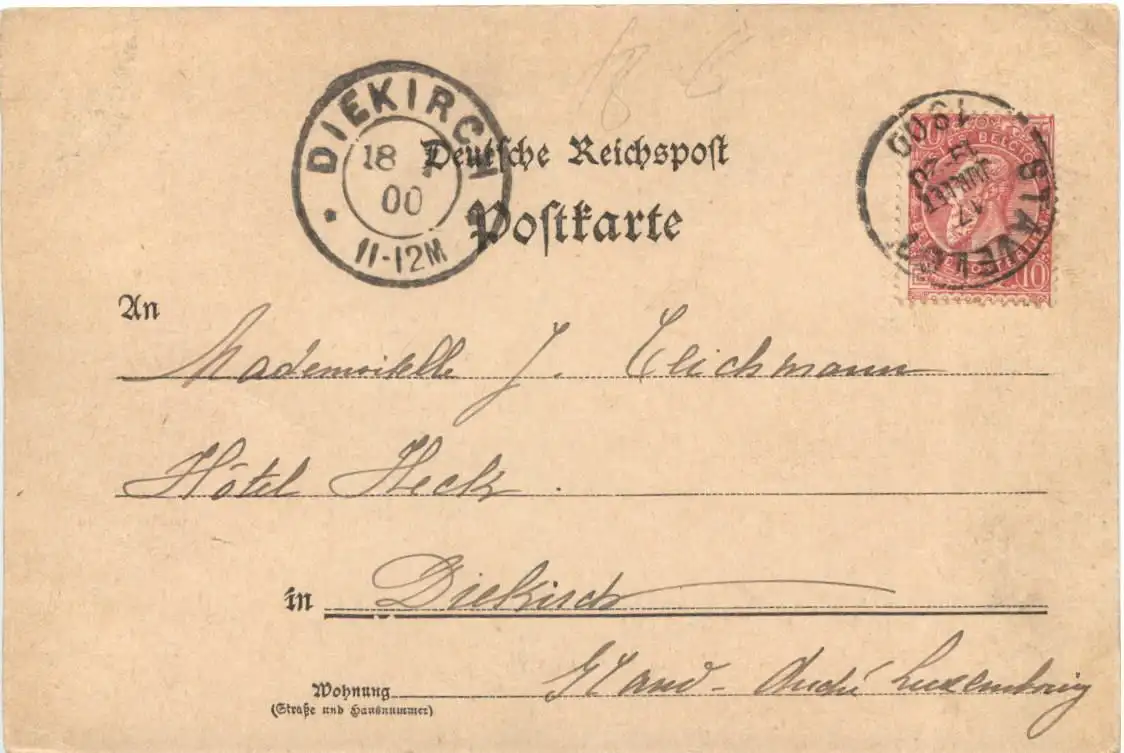 18 6
DIEKIRCH
18 7
00
11-12M
Deutsche Reichspost
Postkarte
STAVELOT
17
JUILLET
1900
BELGIQUE
10
An
Mademoiselle J. Teichmann
Hôtel Heck.
in Diekirch
Grand-Duché Luxembourg
Wohnung
(Straße und Hausnummer)